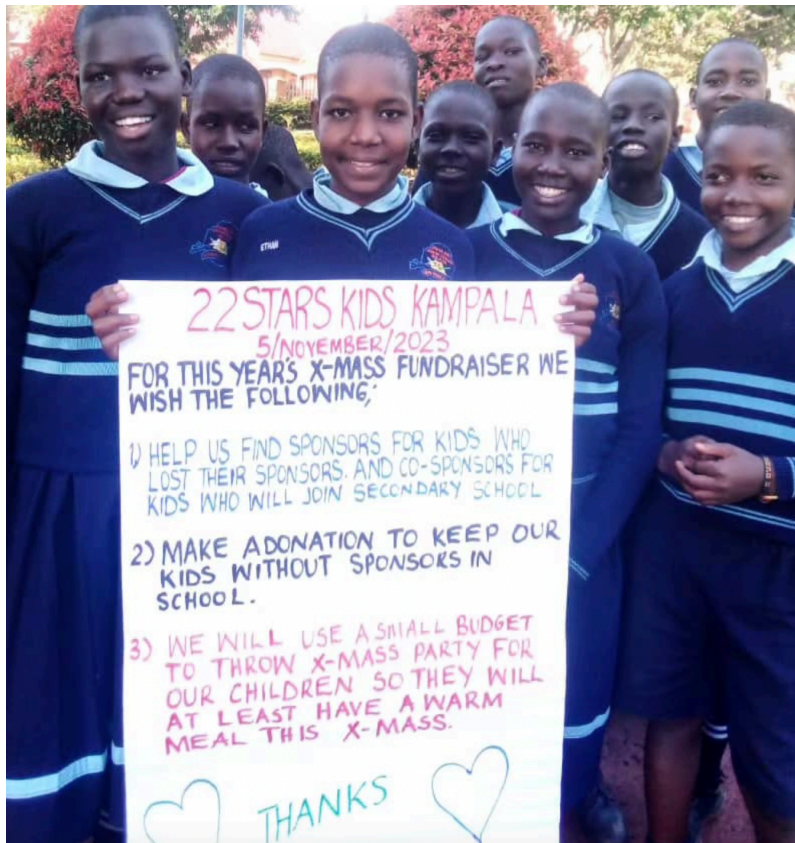 ETHAN
22 STARS KIDS KAMPALA
5/NOVEMBER/2023
FOR THIS YEAR'S X-MASS FUNDRAISER WE
WISH THE FOLLOWING;
1) HELP US FIND SPONSORS FOR KIDS WHO
LOST THEIR SPONSORS. AND CO-SPONSORS FOR
KIDS WHO WILL JOIN SECONDARY SCHOOL
2) MAKE A DONATION TO KEEP OUR
KIDS WITHOUT SPONSORS IN
SCHOOL.
3) WE WILL USE A SMALL BUDGET
TO THROW X-MASS PARTY FOR
OUR CHILDREN SO THEY WILL
AT LEAST HAVE A WARM
MEAL THIS X-MASS.
THANKS